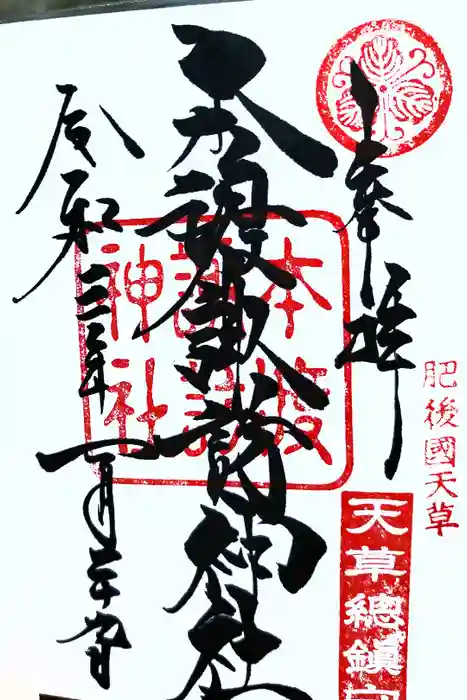 奉拝
肥後國天草
天草總鎮
本渡諏訪神社
本渡
諏訪
神社
令和三年一月